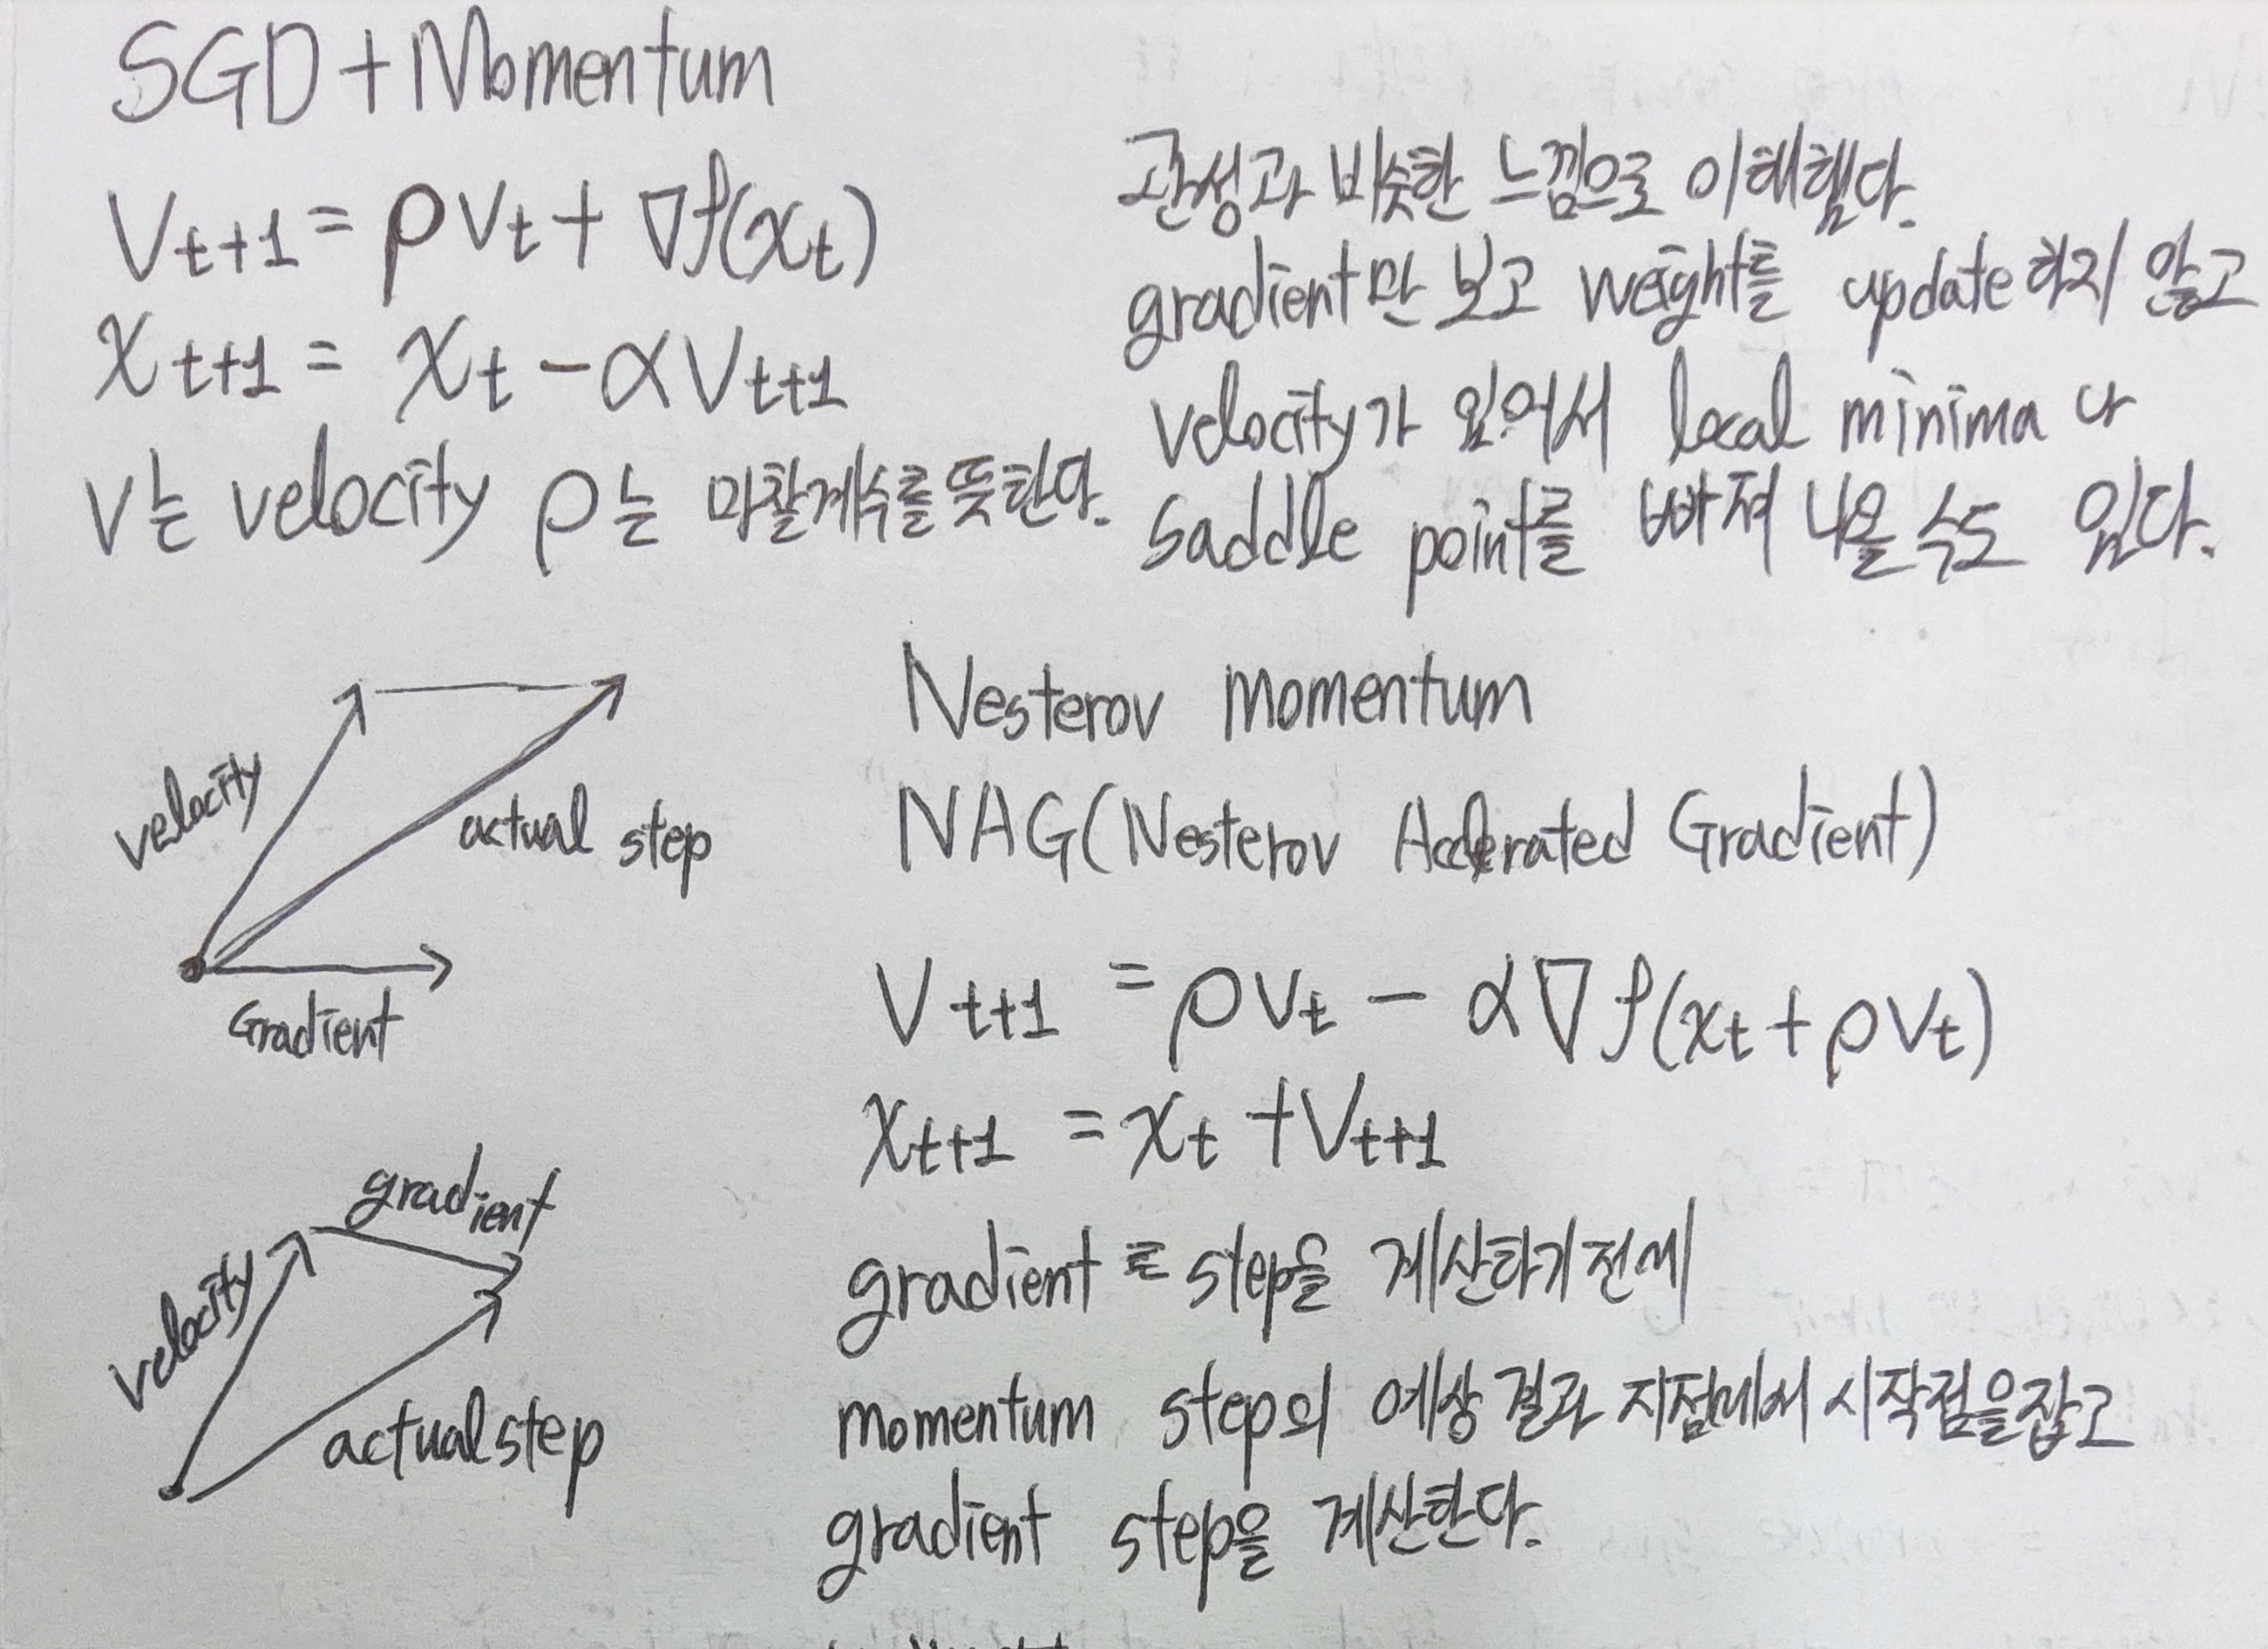 SGD + Momentum
V_{t+1} = ρV_t + ∇f(x_t)
x_{t+1} = x_t - αV_{t+1}
V는 velocity ρ는 마찰계수를 뜻한다.
관성과 비슷한 느낌으로 이해했다.
gradient만 보고 weight를 update하지 않고
velocity가 있어서 local minima나
saddle point를 빠져 나올 수도 있다.
velocity
actual step
Gradient
Nesterov momentum
NAG(Nesterov Accelerated Gradient)
V_{t+1} = ρV_t - α∇f(x_t + ρV_t)
x_{t+1} = x_t + V_{t+1}
gradient
velocity
actual step
gradient step을 계산하기 전에
momentum step의 예상 결과 지점에서 시작점을 잡고
gradient step을 계산한다.